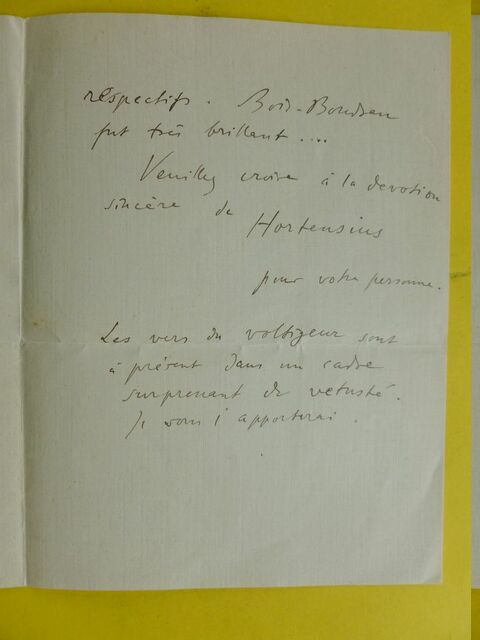 respectifs. Bois-Boudran
fut très brillant....
Veuillez croire à la devotion
sincère de
Hortensius
pour votre personne.
Les vers du voltigeur sont
à présent dans un cadre
surprenant de vetusté.
Je vous l'apporterai.